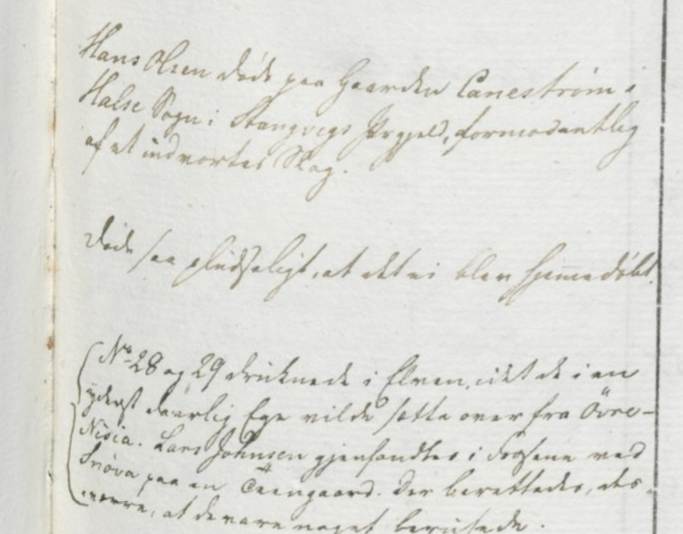 Hans Olsen døde paa Gaarden Canestrøm i
Halse Sogn i Stangvigs Prgjeld, formodentlig
af et indvortes Slag.
Døde saa pludseligt, at det ei blev hjemmedøbt.
No 28 og 29 druknede i Elven, idet de i en
yderst daarlig Ege vilde sætte over fra Övre-
Nisia. Lars Johnsen gjenfandtes i Fossene ved
Snøva paa en Teengaard. Der berettedes, des-
værre, at de vare noget berusede.